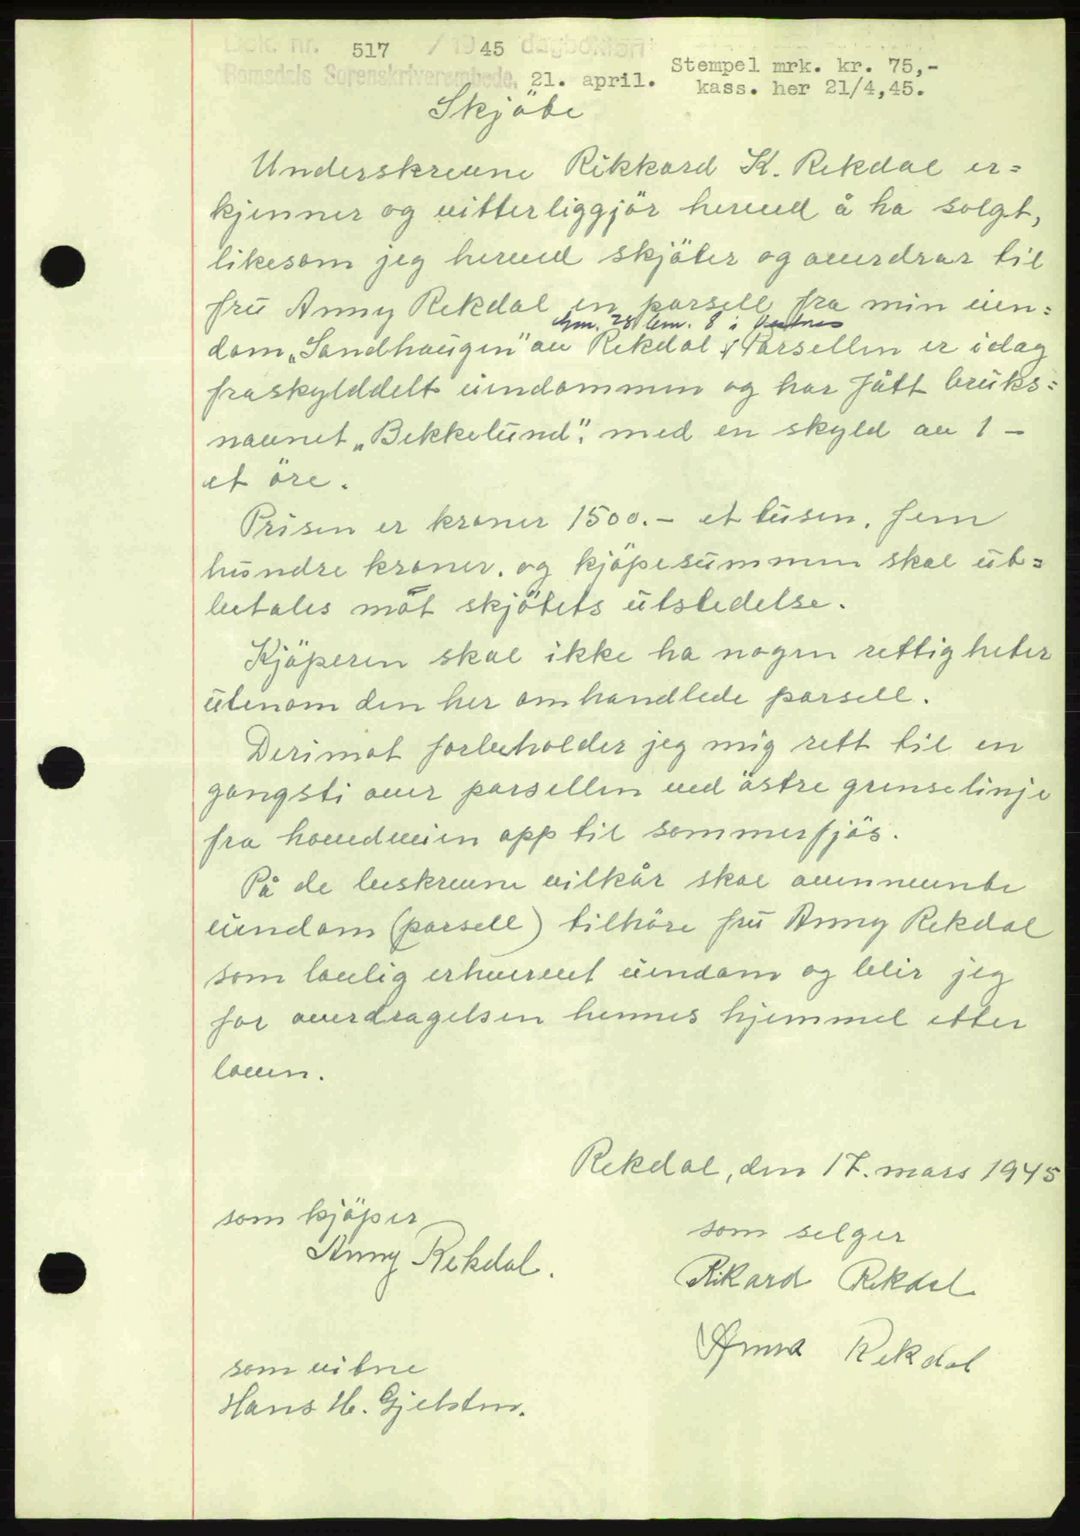 Dok. nr. 517 / 1945 dagboken
Romsdals Sorenskriverembede, 21. april.
Stempel mrk. kr. 75,-
kass. her 21/4,45.
Skjöte
Underskrevne Rikkard K. Rekdal er=
kjenner og vitterliggjör herved å ha solgt,
likesom jeg herved skjöter og overdrar til
fru Anny Rekdal en parsell fra min eien=
gnr. 28 bnr. 8 i Vestnes
dom „Sandhaugen" av Rekdal. Parsellen er idag
fraskylddelt eiendommen og har fått bruks=
navnet „Bekkelund", med en skyld av 1 –
et öre.
Prisen er kroner 1500.– et tusen, fem
hundre kroner, og kjöpesummen skal ut=
betales mot skjötets utstedelse.
Kjöperen skal ikke ha nogen rettigheter
utenom den her omhandlede parsell.
Derimot forbeholder jeg mig rett til en
gangsti over parsellen ved östre grenselinje
fra hovedveien opp til sommerfjös.
På de beskrevne vilkår skal ovennevnte
eiendom (parsell) tilhöre fru Anny Rekdal
som lovlig erhvervet eiendom og blir jeg
for overdragelsen hennes hjemmel etter
loven.
Rekdal, den 17. mars 1945
som kjöper
Anny Rekdal.
som selger
Rikard Rekdal
Anna Rekdal
som vitne
Hans H. Gjelsten.